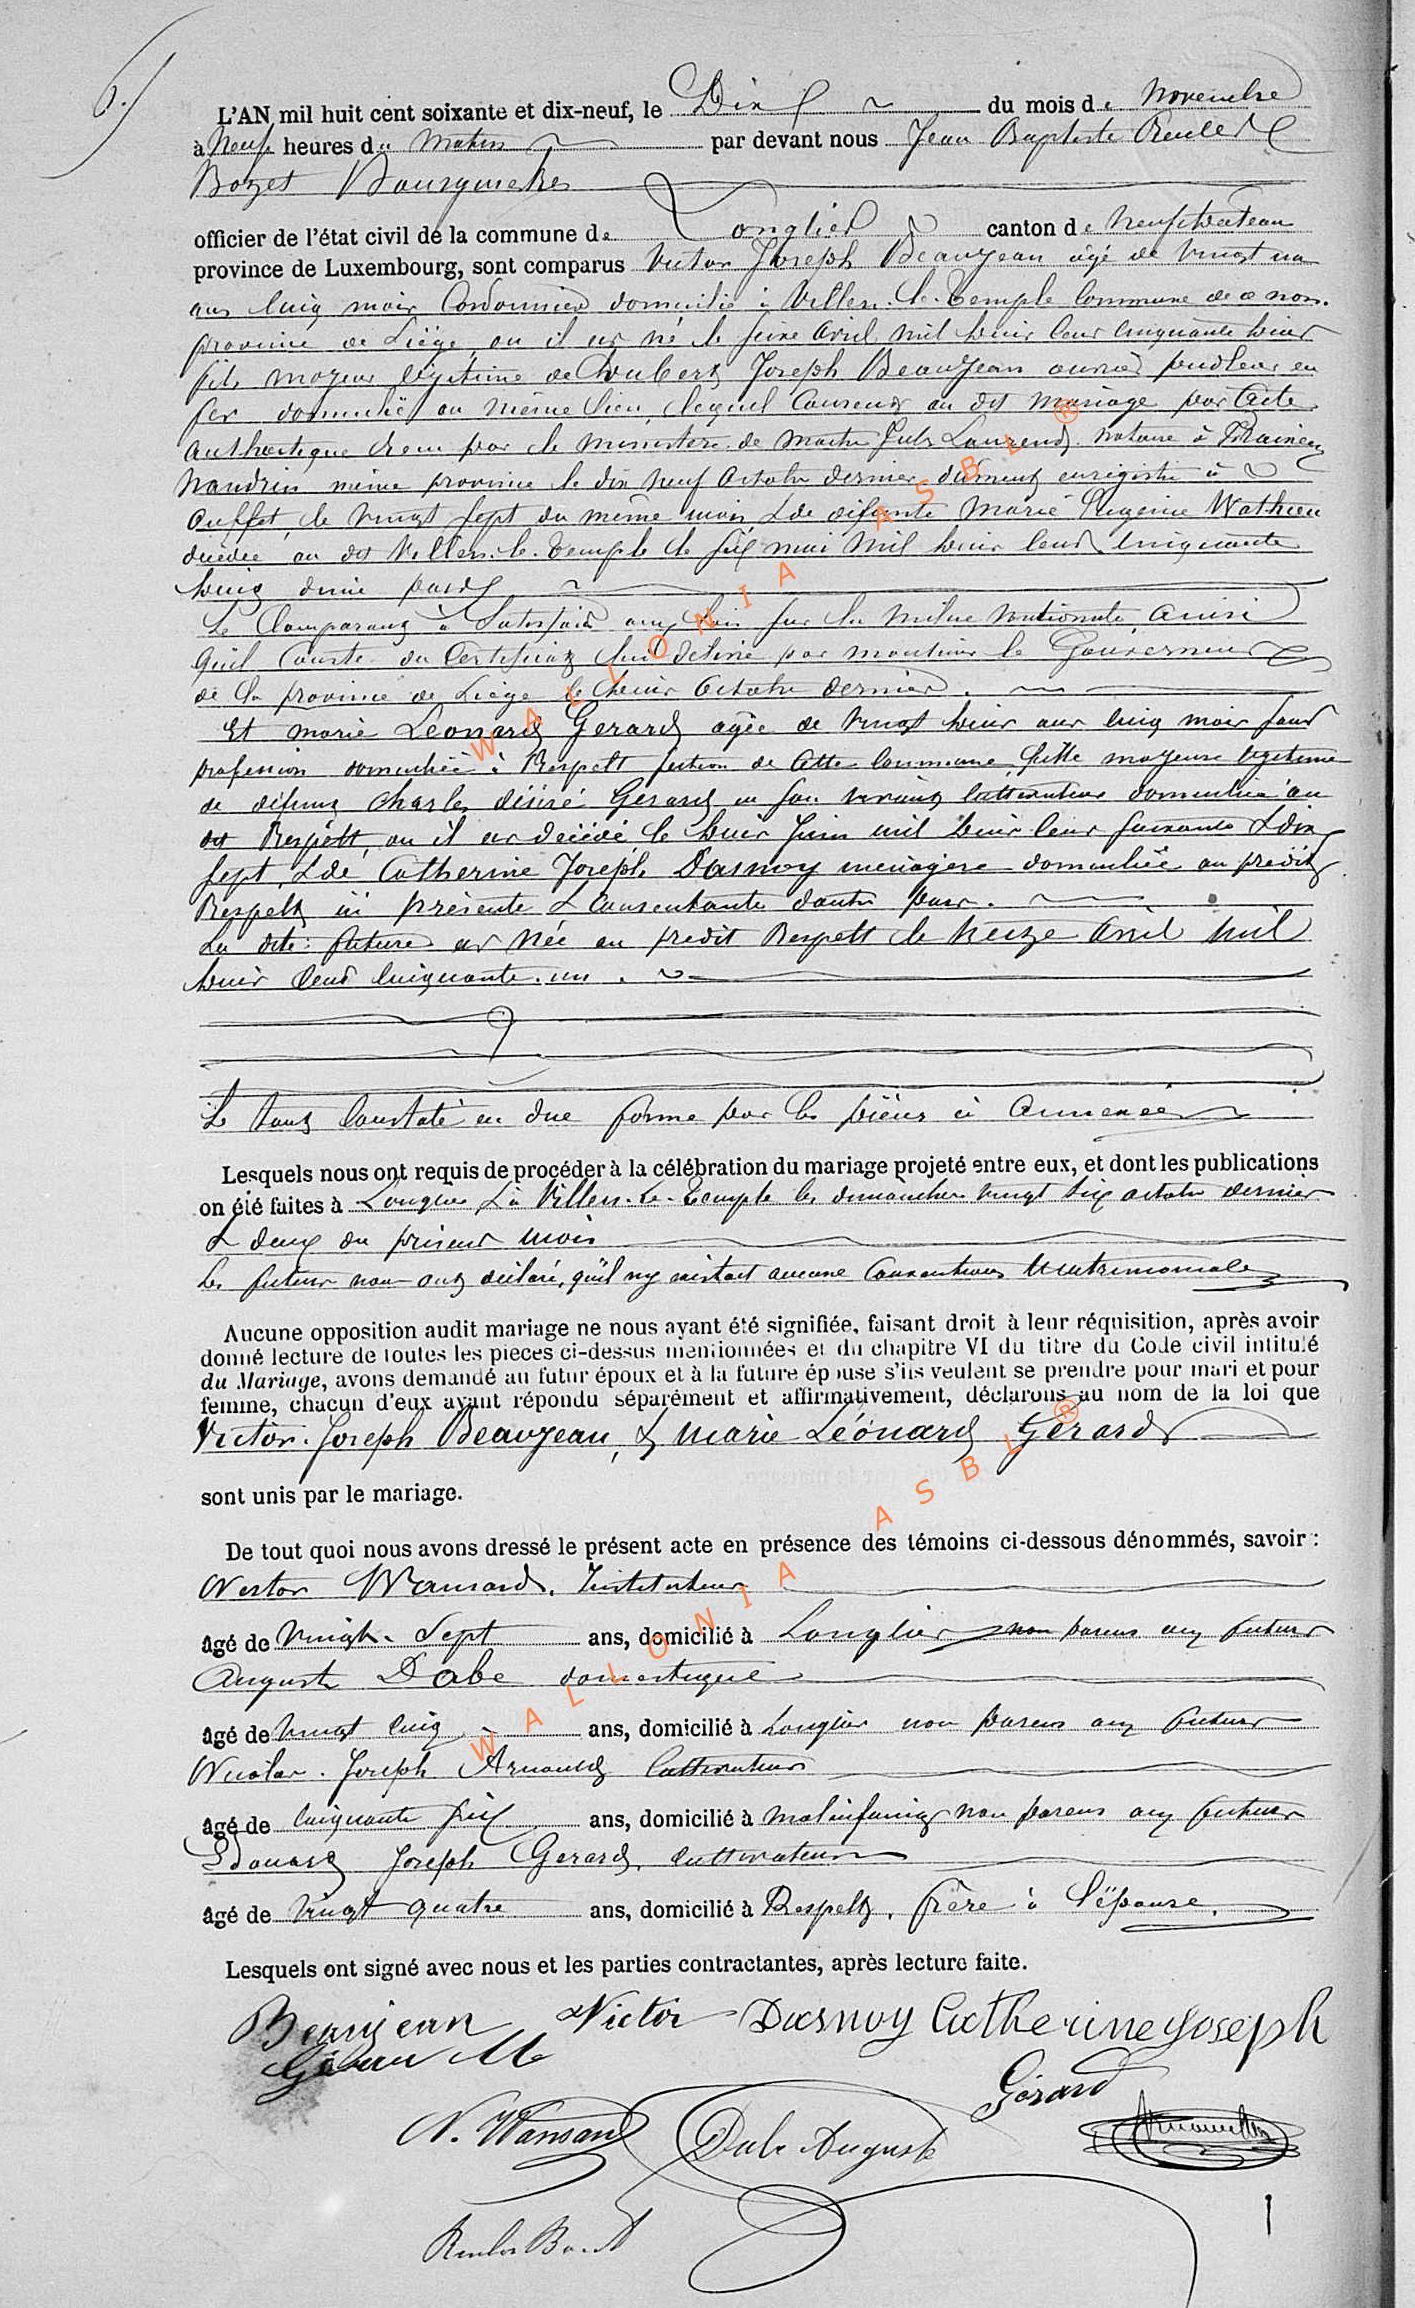 6.
L'AN mil huit cent soixante et dix-neuf, le Dix du mois de Novembre
à Neuf heures du Matin par devant nous Jean Baptiste Reuler
Bozet Bourgmestre
officier de l'état civil de la commune de Longlier canton de Neufchateau
province de Luxembourg, sont comparus Victor Joseph Beaujean agé de vingt un
ans cinq mois Cordonnier domicilié à Villers-le-Temple Commune de ce nom.
province de Liège, ou il est né le seize Avril mil huit cent cinquante huit
fils majeur légitime de Hubert Joseph Beaujean ouvrier pudleur en
fer domicilié au même lieu, lequel consent au dit mariage par Acte
authentique reçu par le ministère de Maitre Jules Laurent notaire à Fraineux
Nandrin même province le dix neuf Octobre dernier dument enregistré à
Ouffet, le vingt sept du même mois, & de défunte Marie Eugénie Wathieu
décédée au dit Villers-le-Temple le six mai mil huit cent cinquante
huit d'une part
Le Comparant à Satisfait aux Lois sur la Milice Nationale, ainsi
qu'il Conste du Certificat lui délivré par monsieur le Gouverneur
de la province de Liège le huit Octobre dernier.
Et Marie Léonard Gerard agée de vingt huit ans cinq mois sans
profession domiciliée à Respelt section de cette Commune, fille majeure légitime
de défunt Charles désiré Gerard en son vivant Cultivateur domicilié au
dit Respelt, ou il est décédé le huit Juin mil huit cent soixante & dix
sept, & de Catherine Joseph Dasnoy ménagère domiciliée au prédit
Respelt ici présente & Consentante d'autre part.
La dite future est Née au prédit Respelt le treize Avril mil
huit Cent Cinquante-un.
Le tout Constaté en due forme par les pièces ci annexées
Lesquels nous ont requis de procéder à la célébration du mariage projeté entre eux, et dont les publications
on été faites à Longlier & à Villers-le-Temple les dimanches vingt six octobre dernier
& deux du présent mois
Les futurs nous ont déclaré, qu'il n'y existait aucune Conventions Matrimoniales
Aucune opposition audit mariage ne nous ayant été signifiée, faisant droit à leur réquisition, après avoir
donné lecture de toutes les pièces ci-dessus mentionnées et du chapitre VI du titre du Code civil intitulé
du Mariage, avons demandé au futur époux et à la future épouse s'ils veulent se prendre pour mari et pour
femme, chacun d'eux ayant répondu séparément et affirmativement, déclarons au nom de la loi que
Victor-Joseph Beaujean, & Marie Léonard Gerard
sont unis par le mariage.
De tout quoi nous avons dressé le présent acte en présence des témoins ci-dessous dénommés, savoir :
Nestor Wansard, Instituteur
âgé de vingt-sept ans, domicilié à Longlier non parent aux futurs
Auguste Dabe domestique
âgé de vingt cinq ans, domicilié à Longlier non parent aux futurs
Nicolas-Joseph Arnould Cultivateur
âgé de cinquante six ans, domicilié à Molinfaing non parent aux futurs
Edouard Joseph Gerard, cultivateur
âgé de vingt quatre ans, domicilié à Respelt, frère à l'épouse.
Lesquels ont signé avec nous et les parties contractantes, après lecture faite.
Beaujean Victor Dasnoy Catherine Joseph
Gérard
N. Wansard Dabe Auguste Arnould
WALLONIA ASBL ®
WALLONIA ASBL ®